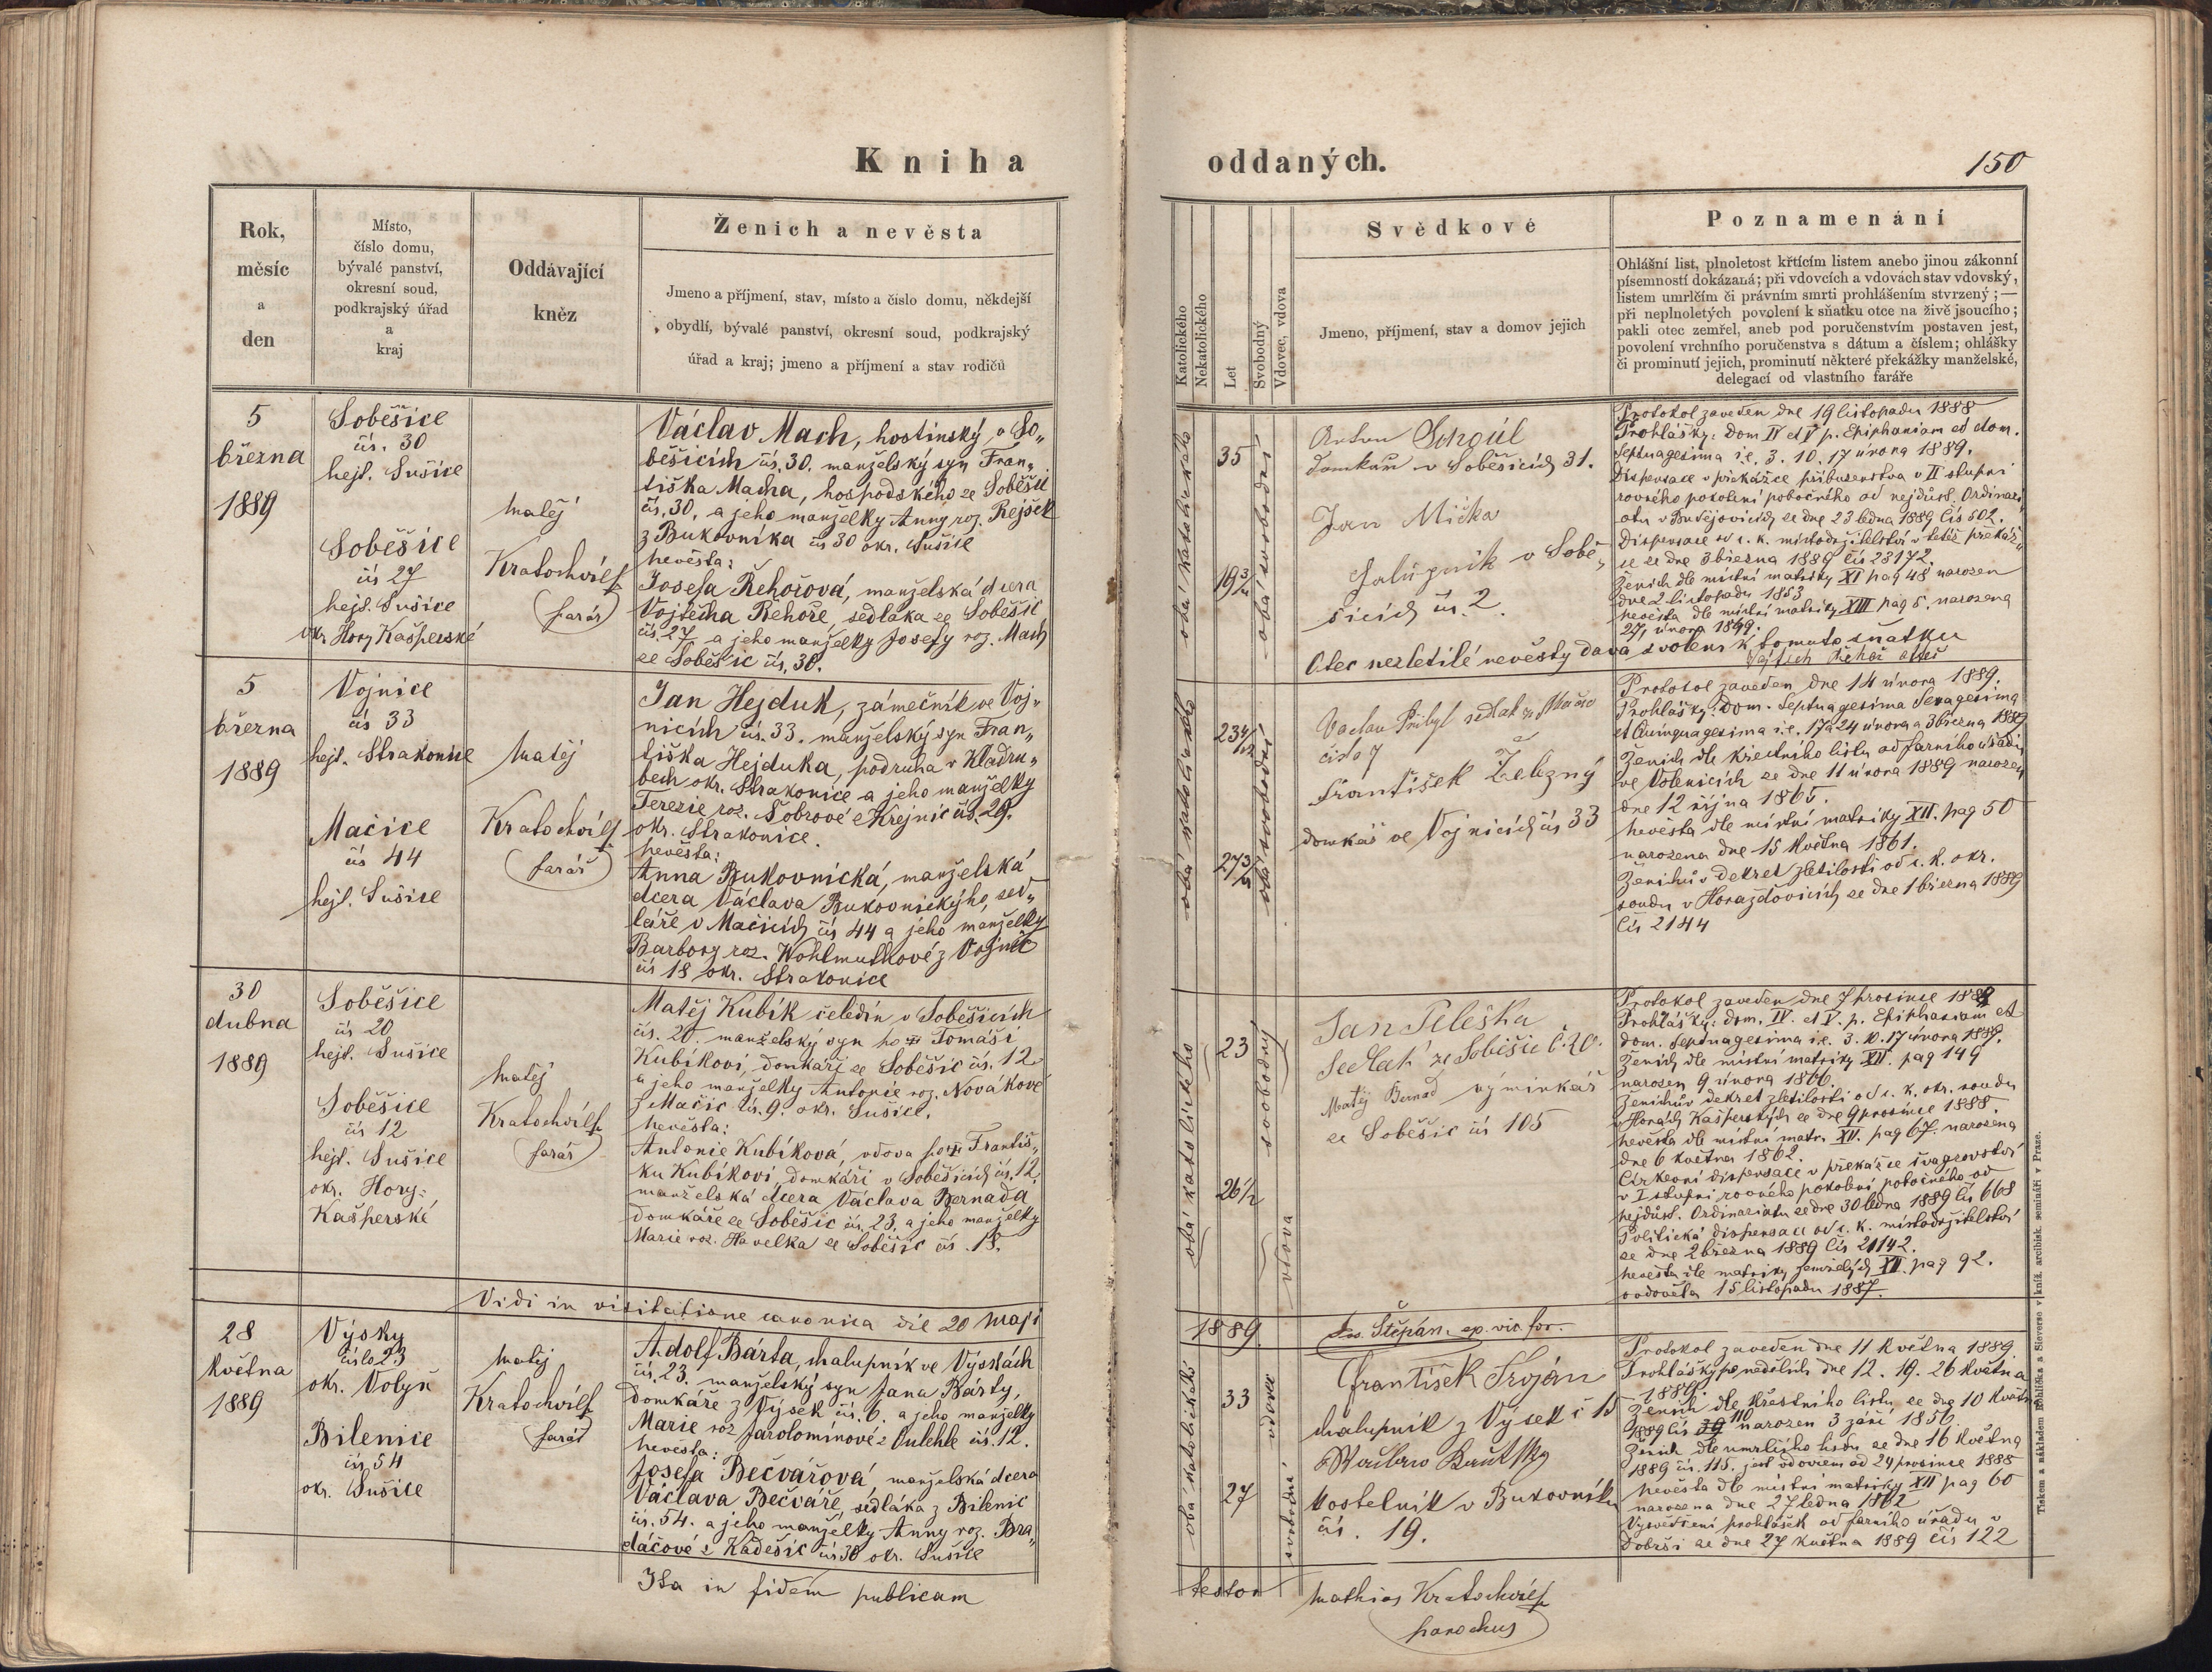 Kniha oddaných.
150
Rok,
měsíc
a
den
Místo,
číslo domu,
bývalé panství,
okresní soud,
podkrajský úřad
a
kraj
Oddávající
kněz
Ženich a nevěsta
Jmeno a příjmení, stav, místo a číslo domu, někdejší
obydlí, bývalé panství, okresní soud, podkrajský
úřad a kraj; jmeno a příjmení a stav rodičů
Katolického
Nekatolického
Let
Svobodný
Vdovec, vdova
Svědkové
Jmeno, příjmení, stav a domov jejich
Poznamenání
Ohlášní list, plnoletost křtícím listem anebo jinou zákonní
písemností dokázaná; při vdovcích a vdovách stav vdovský,
listem umrlčím či právním smrti prohlášením stvrzený; —
při neplnoletých povolení k sňatku otce na živě jsoucího;
pakli otec zemřel, aneb pod poručenstvím postaven jest,
povolení vrchního poručenstva s dátum a číslem; ohlášky
či prominutí jejich, prominutí některé překážky manželské,
delegací od vlastního faráře
5
března
1889
Soběšice
čís. 30
hejt. Sušice
Soběšice
čís 27
hejt. Sušice
okr. Hory Kašperské
Matěj
Kratochvíl
farář
Václav Mach, hostinský v So„
běšicích čís. 30. manželský syn Fran„
tiška Macha, hospodského ze Soběšic
čís. 30, a jeho manželky Anny roz. Rejšek
z Bukovníka čís 30 okr. Sušice
nevěsta:
Josefa Řehořová, manželská dcera
Vojtěcha Řehoře, sedláka ze Soběšic
čís. 27 a jeho manželky Josefy roz. Mach
ze Soběšic čís. 30.
obá katolického
35
19 3/4
obá svobodní
Anton
domkář v Soběšicích 31.
Jan Mička
Chalupník v Sobě„
šicích čís. 2.
Protokol zaveden dne 19 listopadu 1888
Prohlášky: Dom IV et V p. Epiphaniam et dom.
Septuagesima i.e. 3. 10. 17 února 1889.
Dispensace v překážce příbuzenstva v II stupni
rovného pokolení pobočného od nejdůst. Ordinari„
atu v Budějovicích ze dne 23 ledna 1889 čís 502.
Dispensace od c. k. místodržitelství v téže překáž„
ce ze dne 3 března 1889 čís 23172.
Ženich dle místní matriky XI pag 48 narozen
dne 2 listopadu 1853
nevěsta dle místní matriky XIII pag 5. narozena
Otec nezletilé nevěsty dává svolení k tomuto sňatku
Vojtěch Řehoř otec
5
března
1889
Vojnice
čís 33
hejt. Strakonice
Mačice
čís 44
hejt. Sušice
Matěj
Kratochvíl
farář
Jan Hejduk, zámečník ve Voj„
nicích čís. 33. manželský syn Fran„
tiška Hejduka, podruha v Kladru„
bech okr. Strakonice a jeho manželky
Terezie roz. Šobrové z Krejnic čís. 29.
okr. Strakonice.
nevěsta:
Anna Bukovnická, manželská
dcera Václava Bukovnickýho, sed„
láře v Mačicích čís 44 a jeho manželky
Barbory roz. Wohlmuthové z Vojnic
čís 18 okr. Strakonice
obá katolického
23 4/12
27 3/4
obá svobodní
Václav Přibyl sedlák z Mačic
číslo 7
František Železný
domkář ve Vojnicích čís 33
Protokol zaveden dne 14 února 1889.
Prohlášky: Dom. Septuagesima Sexagesima
et Quinquagesima i.e. 17 a 24 února a 3 března 1889
Ženich dle křestního listu od farního úřadu
ve Volenicích ze dne 11 února 1889 narozen
dne 12 října 1865.
nevěsta dle místní matriky XII. pag 50
narozena dne 15 května 1861.
Ženichův dekret zletilosti od c. k. okr.
soudu v Horažďovicích ze dne 1 března 1889
čís 2144
30
dubna
1889
Soběšice
čís 20
hejt. Sušice
Soběšice
čís 12
hejt. Sušice
okr. Hory
Kašperské
Matěj
Kratochvíl
farář
Matěj Kubík čeledín v Soběšicích
čís. 20. manželský syn po † Tomáši
Kubíkovi, domkáři ze Soběšic čís. 12
a jeho manželky Antonie roz. Novákové
z Mačic čís. 9. okr. Sušice.
nevěsta:
Antonie Kubíková, vdova po † Františ„
ku Kubíkovi, domkáři v Soběšicích čís. 12,
manželská dcera Václava Bernada
domkáře ze Soběšic čís. 23. a jeho manželky
Marie roz. Havelka ze Soběšic čís. 18.
obá katolického
23
26 1/2
svobodný
vdova
Jan Peleška
Sedlák ze Soběšic č. 20.
Matěj Bernad výminkář
ze Soběšic čís 105
Protokol zaveden dne 7 prosince 1888
Prohlášky: dom. IV. et V. p. Epiphaniam et
dom. Septuagesima i.e. 3. 10. 17 února 1889.
Ženich dle místní matriky XII. pag 149
narozen 9 února 1866.
Ženichův dekret zletilosti od c. k. okr. soudu
v Horách Kašperských ze dne 9 prosince 1888.
nevěsta dle místní matr. XII. pag 67. narozena
dne 6 května 1862.
Církevní dispensace v překážce švagrovství
v I stupni rovného pokolení pobočného od
nejdůst. Ordinariatu ze dne 30 ledna 1889 čís 668
Politická dispensace od c. k. místodržitelství
ze dne 2 března 1889 čís 21142.
nevěsta dle matriky zemřelých XII. pag 92.
ovdověla 15 listopadu 1887.
Vidi in visitatione canonica die 20 Maji
1889.
Jos. Štěpán, ep. vic. for.
28
května
1889
Výsky
číslo 23
okr. Volyň
Bilenice
čís 54
okr. Sušice
Matěj
Kratochvíl
farář
Adolf Bárta, chalupník ve Výskách
čís. 23. manželský syn Jana Bárty,
domkáře z Výsek čís. 6. a jeho manželky
Marie roz Jarolomínové z Čulehle čís. 12.
nevěsta:
Josefa Bečvářová manželská dcera
Václava Bečváře, sedláka z Bilenic
čís. 54. a jeho manželky Anny roz. Bra„
dáčové z Kadešic čís 30 okr. Sušice
obá katolické
33
27
vdovec
svobodná
František Troján
chalupník z Výsek č 15
kostelník v Bukovníku
čís. 19.
Protokol zaveden dne 11 května 1889.
Prohlášky po nedělích dne 12. 19. 26 května
1889.
Ženich dle křestního listu ze dne 10 května
1889 čís 110 narozen 3 září 1856.
Ženich dle umrlčího listu ze dne 16 května
1889 čís. 115. jest vdovcem od 24 prosince 1888
nevěsta dle místní matriky XII pag 60
narozena dne 27 ledna 1862
Vysvědčení prohlášek od farního úřadu v
Dobrši ze dne 27 května 1889 čís 122
Ita in fidem publicam
testor Mathias Kratochvíl
parochus
Tiskem a nákladem Rohlíčka a Sieversa v kníž. arcibisk. semináři v Praze.